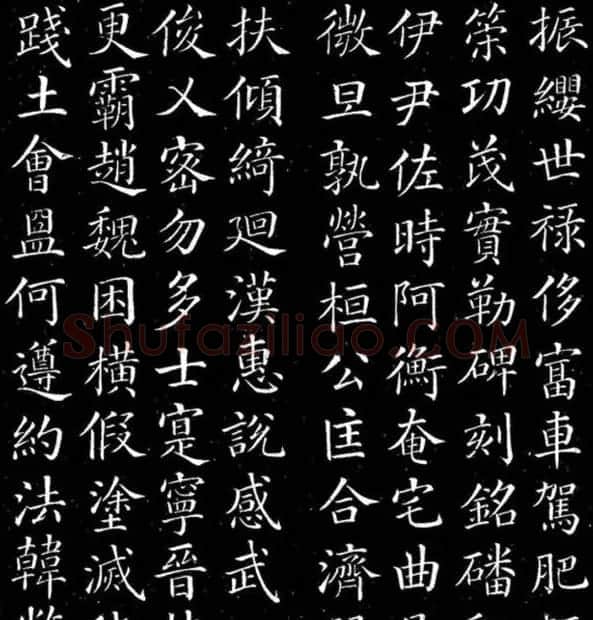 振纓世禄侈富車駕肥
策功茂實勒碑刻銘磻
伊尹佐時阿衡奄宅曲
微旦孰營桓公匡合濟
扶傾綺廻漢惠說感武
俊乂密勿多士寔寧晉
更霸趙魏困横假塗滅
踐土會盟何遵約法韓
Shufaziliao.COM